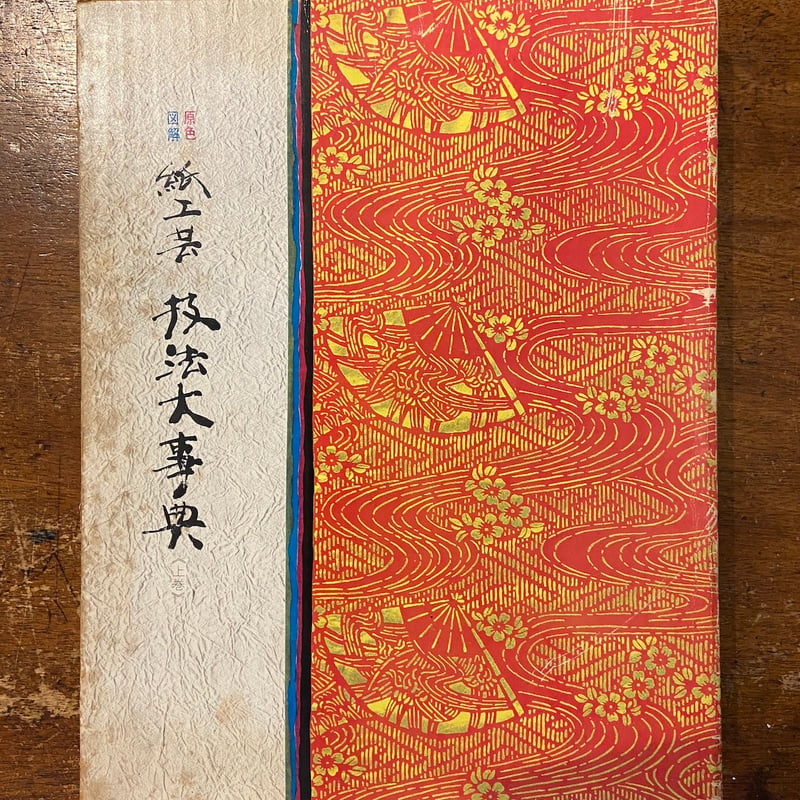 原色
図解
紙工芸 技法大事典
上巻